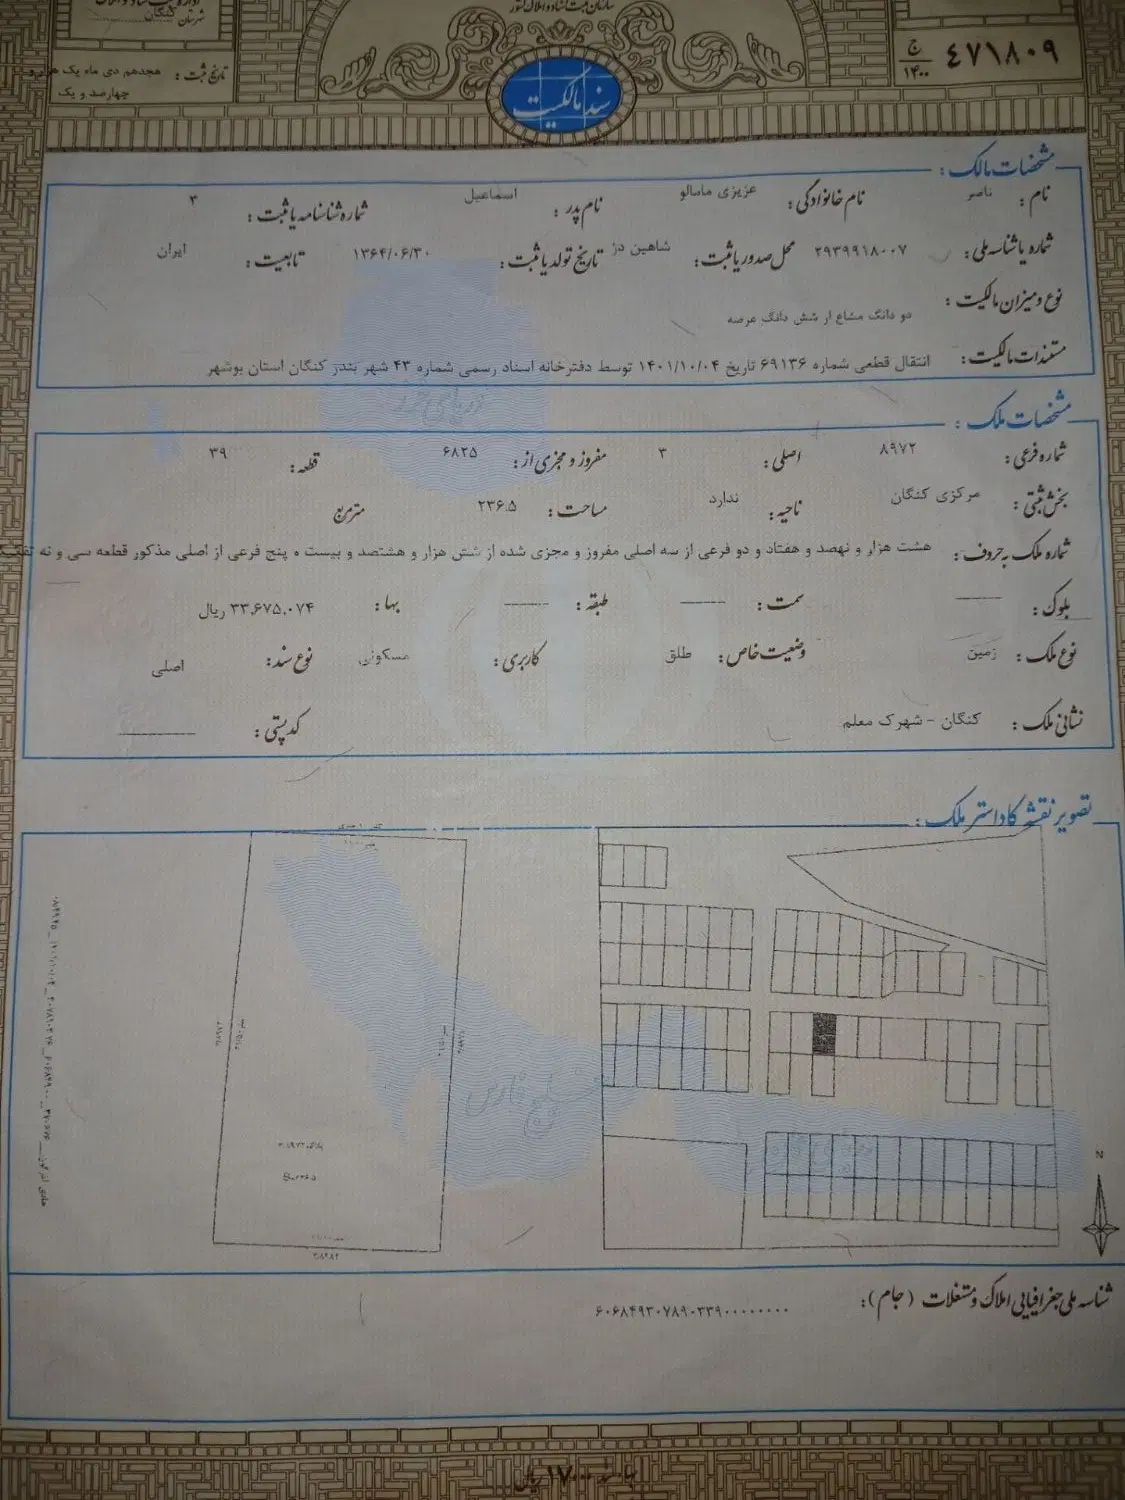 سازمان ثبت اسناد و املاک کشور
شهرستان کنگان
۴۷۱۸۰۹ ج ۱۴۰۰
تاریخ ثبت : هجدهم دی ماه یک هزار و
چهارصد و یک
سند مالکیت
مشخصات مالک :
نام : ناصر نام خانوادگی : عزیزی ماسالو نام پدر : اسماعیل شماره شناسنامه یا ثبت : ۳
شماره یا شناسه ملی : ۲۹۳۹۹۱۸۰۰۷ محل صدور یا ثبت : شاهین دژ تاریخ تولد یا ثبت : ۱۳۶۴/۰۶/۳۰ تابعیت : ایران
نوع و میزان مالکیت :
دو دانگ مشاع از شش دانگ عرصه
مستندات مالکیت : انتقال قطعی شماره ۶۹۱۳۶ تاریخ ۱۴۰۱/۱۰/۰۴ توسط دفترخانه اسناد رسمی شماره ۴۳ شهر بندر کنگان استان بوشهر
دریای خزر
مشخصات ملک :
شماره فرعی : ۸۹۷۲ اصلی : ۳ مفروز و مجزی از : ۶۸۲۵ قطعه : ۳۹
بخش ثبتی : مرکزی کنگان ناحیه : ندارد مساحت : ۲۳۶.۵ مترمربع
شماره ملک به حروف : هشت هزار و نهصد و هفتاد و دو فرعی از سه اصلی مفروز و مجزی شده از شش هزار و هشتصد و بیست و پنج فرعی از اصلی مذکور قطعه سی و نه
بلوک : سمت : طبقه : بها : ۳۳,۶۷۵,۰۷۴ ریال
نوع ملک : زمین وضعیت خاص : طلق کاربری : مسکونی نوع سند : اصلی
نشانی ملک : کنگان - شهرک معلم کد پستی :
تصویر نقشه کاداستر ملک :
خلیج فارس
N
شناسه ملی جغرافیایی املاک و مستغلات (جام) : ۶۰۶۸۴۹۳۰۷۸۹۰۳۳۹۰۰۰۰۰۰۰۰۰